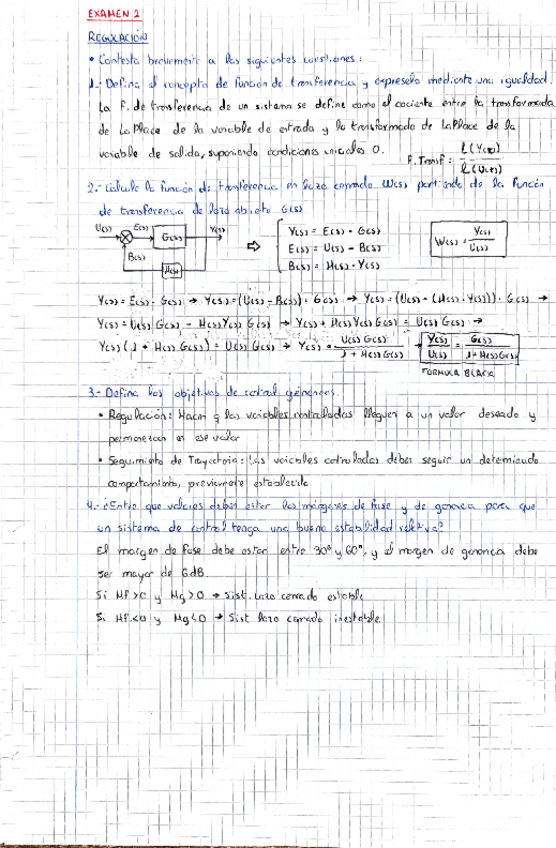 EXAMEN 2
REGULACIÓN
• Contesta brevemente a las siguientes cuestiones:
1.- Defina el concepto de función de transferencia y expreselo mediante una igualdad.
La F. de transferencia de un sistema se define como el cociente entre la transformada
de LaPlace de la variable de entrada y la transformada de LaPlace de la
variable de salida, suponiendo condiciones iniciales 0. F. Transf = ℒ(Y(t)) / ℒ(U(t))
2.- Calcule la función de transferencia en lazo cerrado W(s) partiendo de la función
de transferencia de lazo abierto G(s)
U(s) E(s) G(s) Y(s) B(s) H(s) ⇒
Y(s) = E(s) · G(s)
E(s) = U(s) - B(s)
B(s) = H(s) · Y(s)
W(s) = Y(s) / U(s)
Y(s) = E(s) · G(s) → Y(s) = (U(s) - B(s)) · G(s) → Y(s) = (U(s) - (H(s) · Y(s))) · G(s) →
Y(s) = U(s) G(s) - H(s) Y(s) G(s) → Y(s) + H(s) Y(s) G(s) = U(s) G(s) →
Y(s) (1 + H(s) G(s)) = U(s) G(s) → Y(s) = U(s) G(s) / 1 + H(s) G(s) → Y(s) / U(s) = G(s) / 1 + H(s) G(s)
FÓRMULA BLACK
3.- Defina los objetivos de control genéricos
• Regulación: Hacen q las variables controladas lleguen a un valor deseado y
permanezcan en ese valor
• Seguimiento de Trayectoria: Las variables controladas deben seguir un determinado
comportamiento, previamente establecido
4.- ¿Entre que valores deben estar los márgenes de fase y de ganancia para que
un sistema de control tenga una buena estabilidad relativa?
El margen de fase debe estar entre 30° y 60°, y el margen de ganancia debe
ser mayor de 6dB.
Si Mf>0 y Mg>0 → Sist. lazo cerrado estable
Si Mf<0 y Mg<0 → Sist lazo cerrado inestable